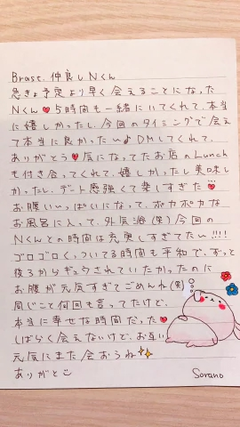 Brase. 仲良しNくん
急きょ予定より早く会えることになった
Nくん❤5時間も一緒にいてくれて、本当
に嬉しかったし、今回のタイミングで会え
て本当に良かったぁ♪DMしてくれて、
ありがとう❤気になってたお店のLunch
も付き合ってくれて、嬉しかったし美味し
かったし、デート感強くて楽しすぎた❤
お腹いーっぱいになって、ポカポカな
お風呂に入って、外気浴(笑)今回の
Nくんとの時間は充実しすぎてたぃ!!!!
ゴロゴロく、ついてる時間も平和で、ずっと
後ろからギュウされていたかったのに
お腹が元気すぎてごめんね(笑)
同じこと何回も言ってたけど、
本当に幸せな時間だった❤
しばらく会えないけど、お互い
元気にまた会おうね✨
ありがとこ
Sorano